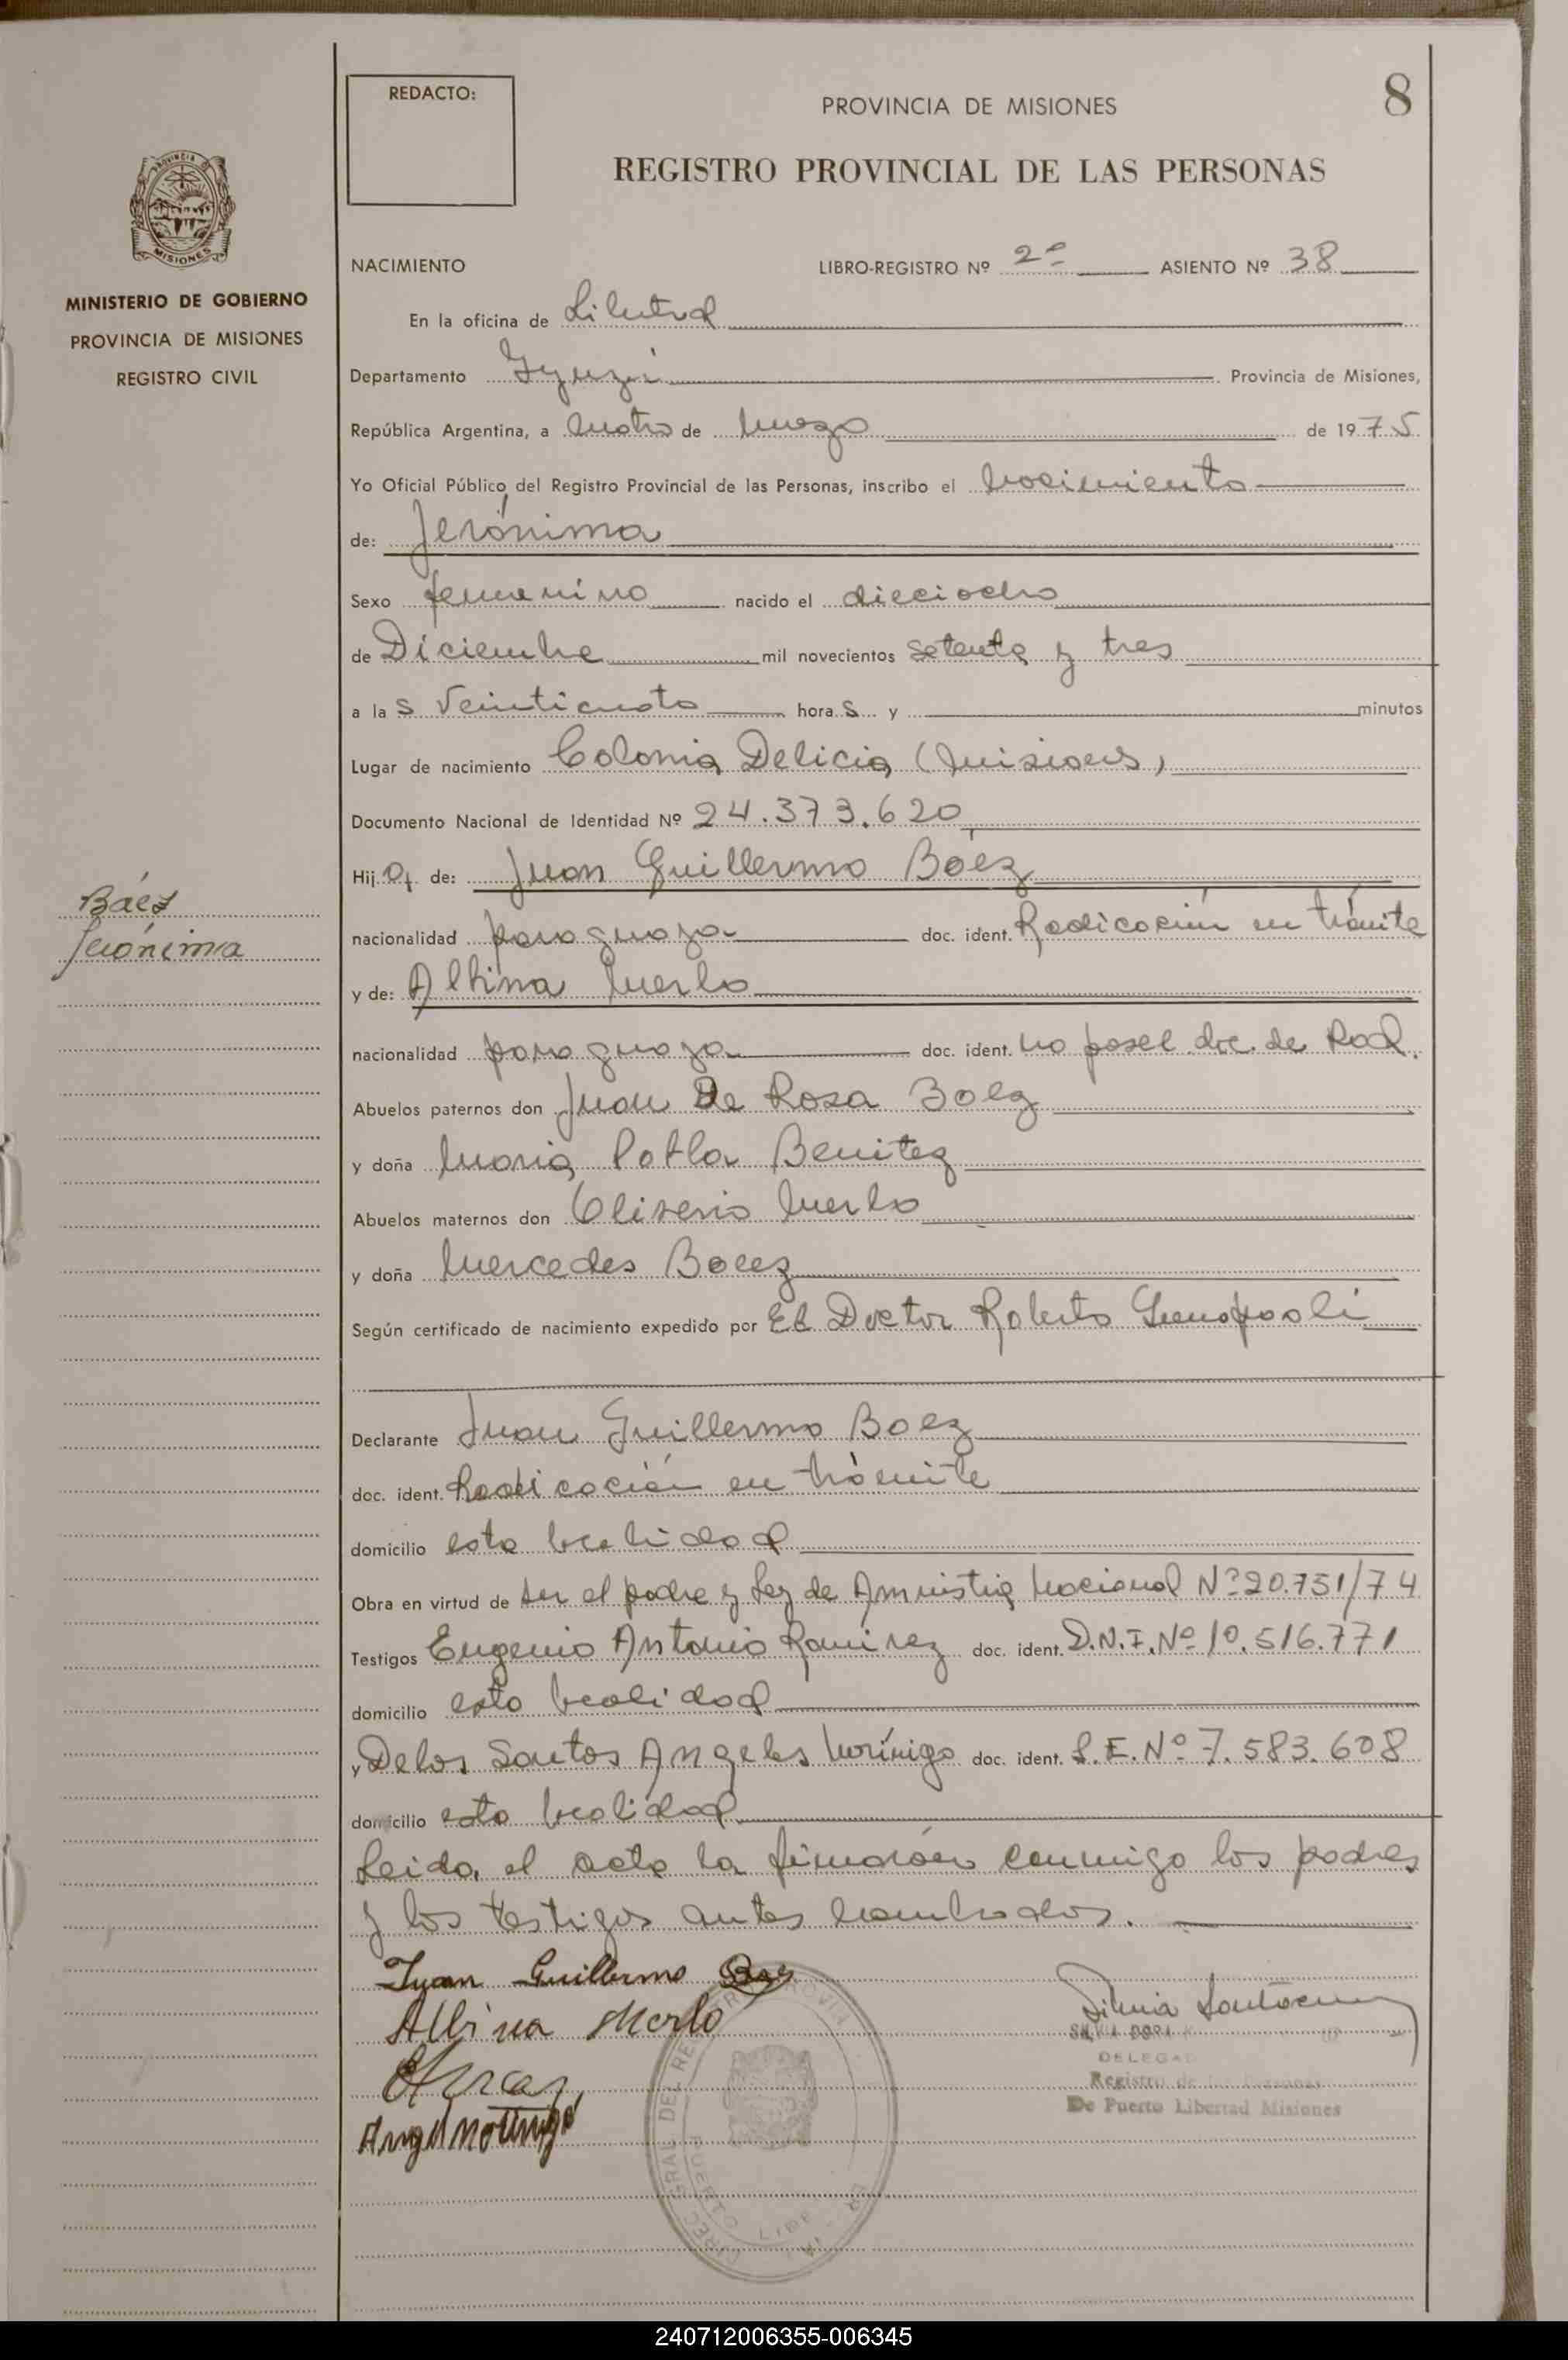 8
REDACTO:
PROVINCIA DE MISIONES
REGISTRO PROVINCIAL DE LAS PERSONAS
MISIONES
MINISTERIO DE GOBIERNO
PROVINCIA DE MISIONES
REGISTRO CIVIL
NACIMIENTO LIBRO-REGISTRO Nº 2º ASIENTO Nº 38
En la oficina de Libertad
Departamento Iguazú Provincia de Misiones,
República Argentina, a cuatro de Marzo de 1975
Yo Oficial Público del Registro Provincial de las Personas, inscribo el Nacimiento
de: Jerónima
Sexo femenino nacido el dieciocho
de Diciembre mil novecientos setenta y tres
a las veinticuatro horas y minutos
Lugar de nacimiento Colonia Delicia (Misiones)
Documento Nacional de Identidad Nº 24.373.620
Hija de: Juan Guillermo Báez
Báez
Jerónima
nacionalidad paraguaya doc. ident. Radicación en trámite
y de: Albina Merlo
nacionalidad paraguaya doc. ident. no posee doc. de Rad.
Abuelos paternos don Juan De Rosa Baez
y doña María Benitez
Abuelos maternos don Merlo
y doña Mercedes Baez
Según certificado de nacimiento expedido por El Doctor Roberto
Declarante Juan Guillermo Baez
doc. ident. Radicación en trámite
domicilio esta localidad
Obra en virtud de ser el padre y Ley de Amnistia Nacional Nº 20.751/74
Testigos Eugenio Antonio Ramírez doc. ident. D.N.I. Nº 10.516.771
domicilio esta localidad
y De los Santos Angeles Morínigo doc. ident. L.E. Nº 7.583.608
domicilio esta localidad
Leida el acta la firmarán conmigo los padres
y los testigos antes nombrados.
Juan Guillermo Baez
Albina Merlo
Angel Morinigo
SILVIA DORA
DELEGAD
Registro de las Personas
De Puerto Libertad Misiones
240712006355-006345